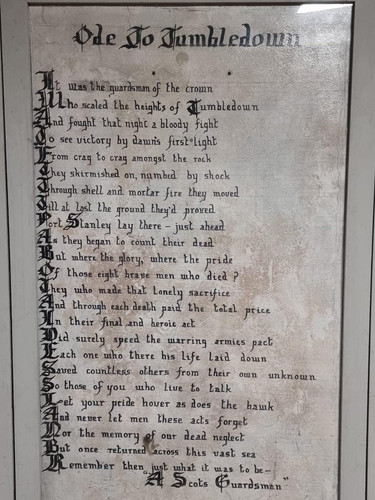 Ode To Tumbledown
It was the guardsman of the crown
Who scaled the heights of Tumbledown
And fought that night a bloody fight
To see victory by dawns first light
From crag to crag amongst the rock
They skirmished on, numbed by shock
Through shell and mortar fire they moved
Till at last the ground they'd proved
Port Stanley lay there - just ahead
As they began to count their dead
But where the glory, where the pride
Of those eight brave men who died?
They who made that lonely sacrifice
And through each death paid the total price
In their final and heroic act
Did surely speed the warring armies pact
Each one who there his life laid down
Saved countless others from their own unknown
So those of you who live to talk
Let your pride hover as does the hawk
And never let men these acts forget
Nor the memory of our dead neglect
But once returned across this vast sea
Remember then just what it was to be-
"A Scots Guardsman"